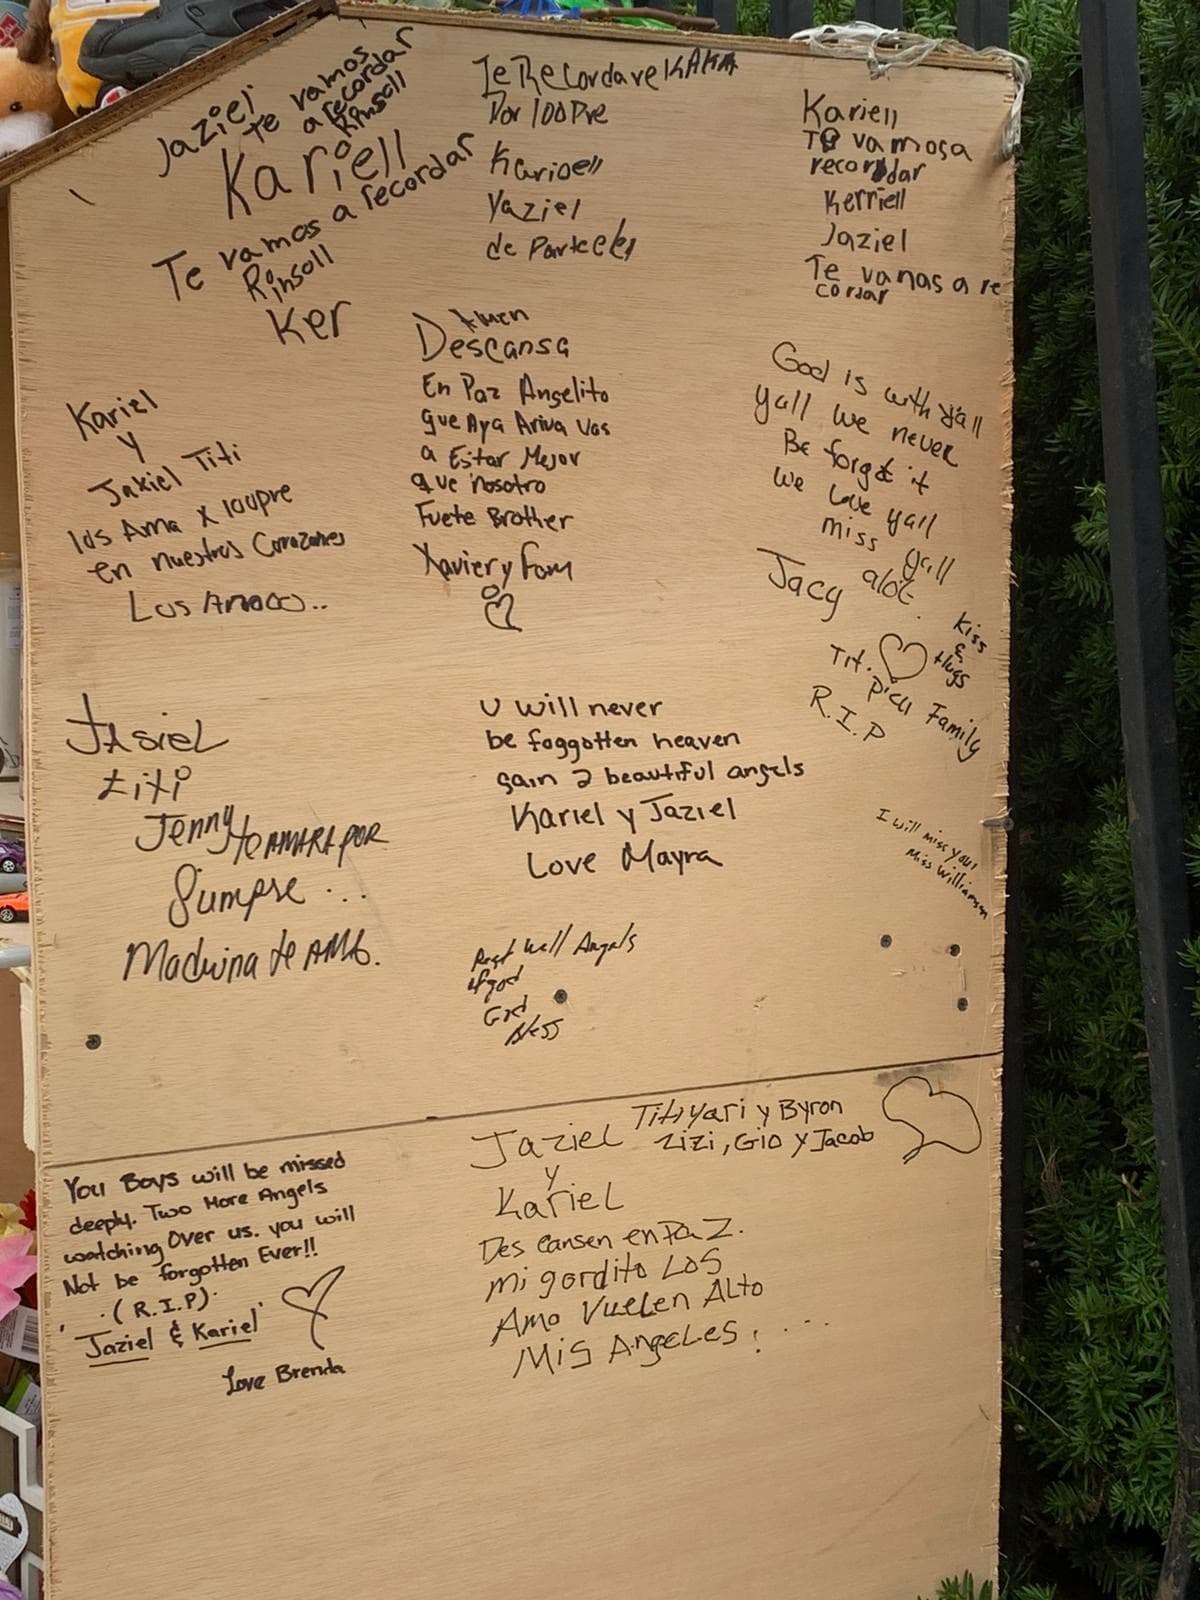 Jaziel
te vamos
a recordar
Rinsoll
Kariell
Te vamos a recordar
Rinsoll
Ker
Te Recordare KAKA
Por 100Pre
Karioell
Yaziel
de Parte del
Kariell
Te vamosa
recordar
Kerriell
Jaziel
Te vamas a re
cordar
Amen
Descansa
En Paz Angelito
que Aya Ariva vas
a Estar Mejor
que nosotro
Fuete Brother
Xavier y Fam
God is with y'all
yall we never
Be forget it
we love yall
miss yall
Jacy alot.
Kiss
&
Hugs
Tit.
Family
R.I.P
Kariel
y
Jakiel Titi
los Ama x 100pre
en nuestros Corazones
Los Amooo..
Jasiel
titi
Jenny te AMARA POR
Siempre ...
Madrina te AMA.
U will never
be foggotten heaven
gain 2 beautiful angels
Kariel y Jaziel
Love Mayra
I will miss you!
Miss Williamson
Rest Well Angels
of god
God
bless
You Boys will be missed
deeply. Two More Angels
watching Over us. you will
Not be forgotten Ever!!
(R.I.P)
Jaziel & Kariel
Love Brenda
Titi Yari y Byron
Zizi, Gio y Jacob
Jaziel
y
Kariel
Des cansen en PaZ.
mi gordito LOS
Amo Vuelen ALTO
Mis Angeles! ...